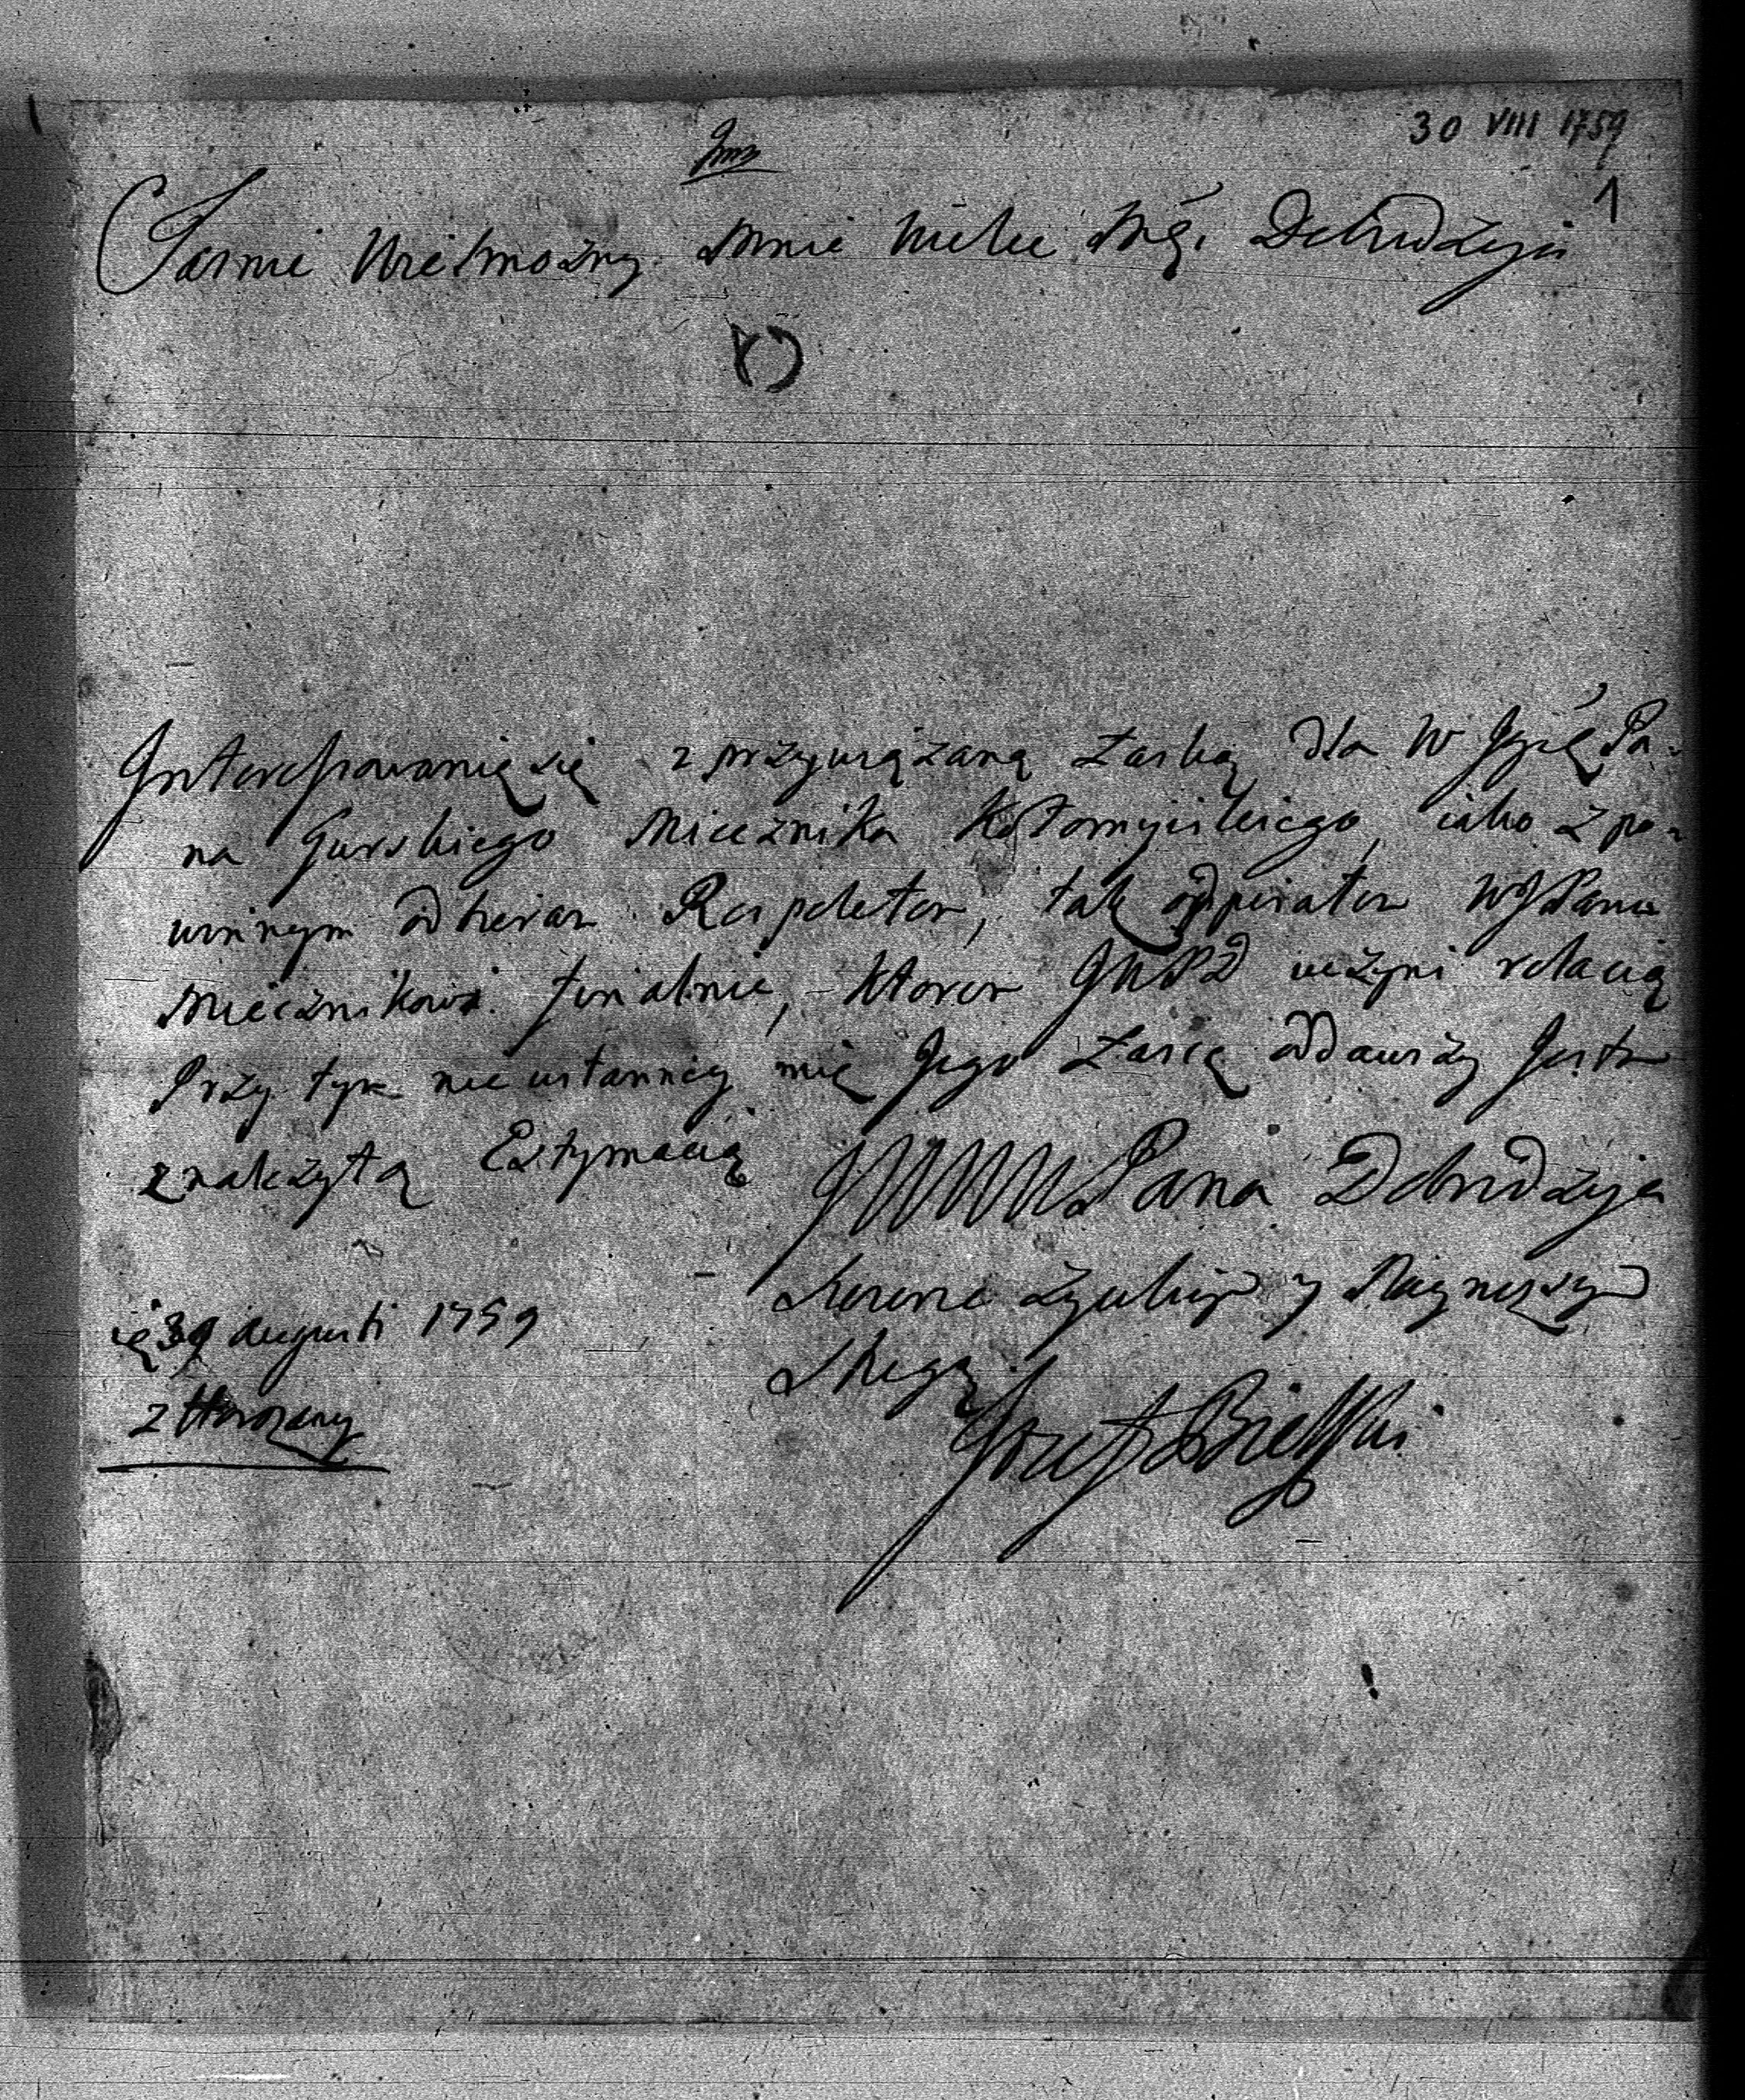 30 VIII 1759
1
Jasnie Wielmożny Mnie Wielce Mśċi Dobrodzyiu
Interessowanię się z przywiązaną Łaską dla W Jmći Pa-
na Gurskiego Miecznika Kołomyiskiego, iako z po-
winnym odbieram Respektem, tak odpisałem WJPanu
Miecznikowi finalnie, ktoren JWPD uczyni relacią
Przy tym nieustanney mię Jego Łasce oddawszy Jestem
z należytą Estymacią
JWWMPana Dobrodzyia
Szczerze życzliwym y Nayniższym
Sługą
30 Augusti 1759
z Horożany
Jozef Bielski